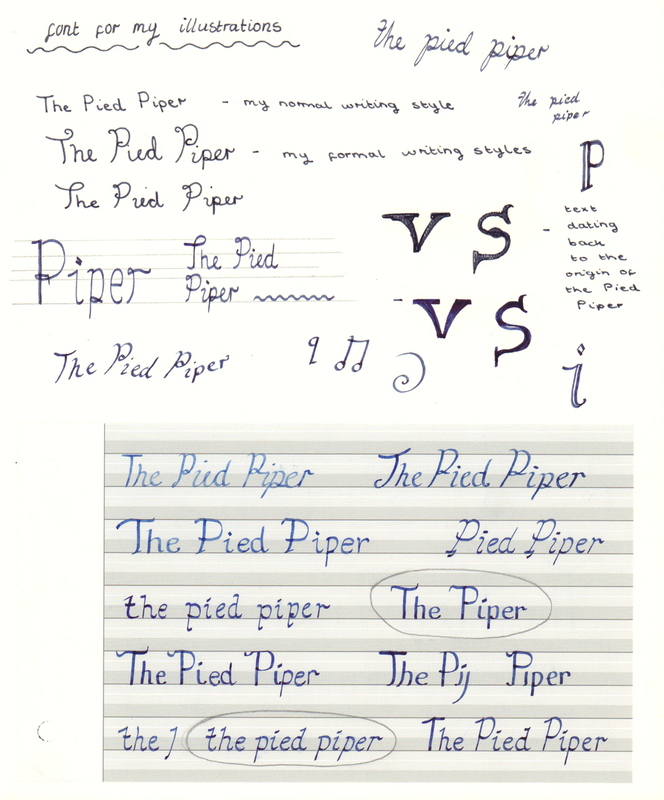 font for my illustrations
the pied piper
The Pied Piper - my normal writing style
the pied
piper
The Pied Piper - my formal writing styles
P
The Pied Piper
v s -
text
dating
back
to the
origin of
the Pied
Piper
Piper
The Pied
Piper
- v s
The Pied Piper
9
i
The Pied Piper
The Pied Piper
The Pied Piper
Pied Piper
the pied piper
The Piper
The Pied Piper
The Pij Piper
the J
the pied piper
The Pied Piper